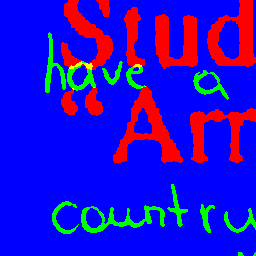 Stud
have a
“Arr
countru